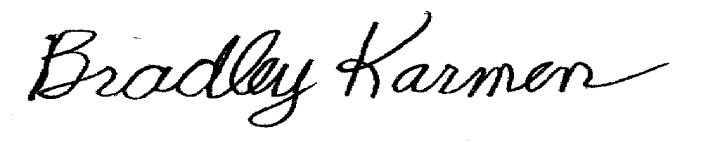 Bradley Karmen